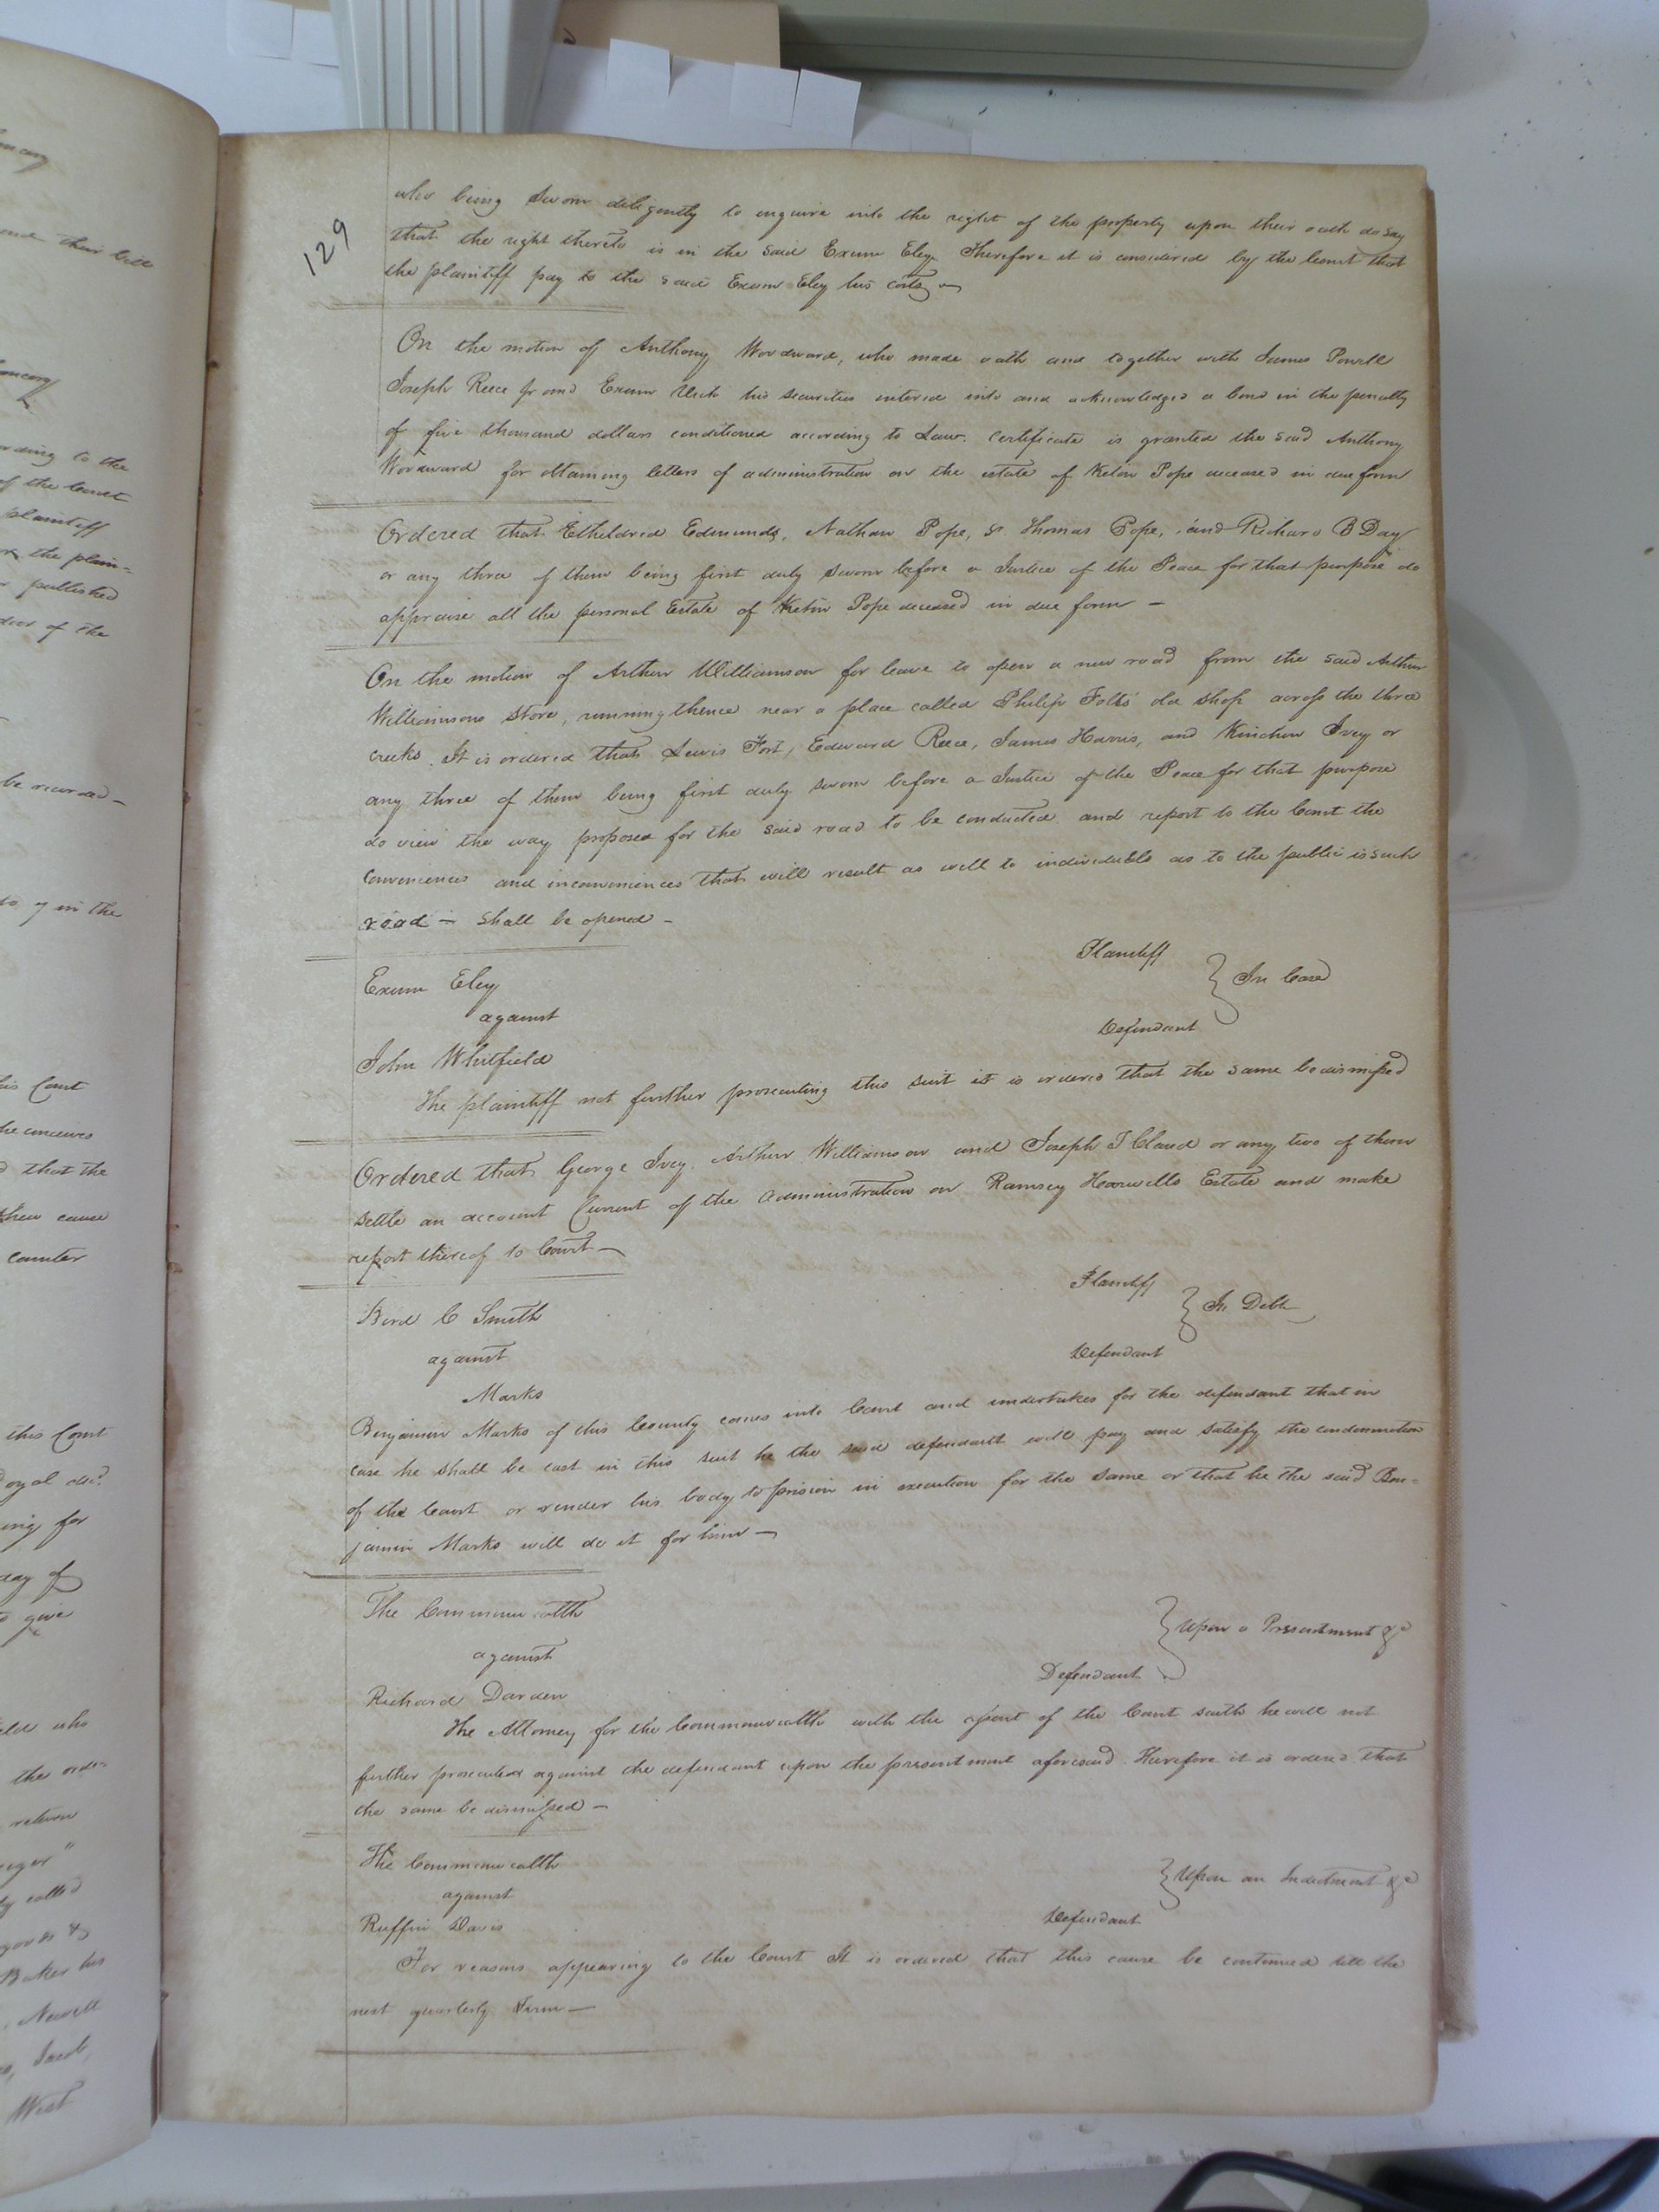 129
who being sworn diligently to enquire into the right of the property upon their oath do say
that the right thereto is in the said Exum Eley Therefore it is considered by the Court that
the plaintiff pay to the said Exum Eley his costs
On the motion of Anthony Woodward, who made oath and together with James Powell
Joseph Reece Jr and Exum his securities entered into and acknowledged a bond in the penalty
of five thousand dollars conditioned according to Law. Certificate is granted the said Anthony
Woodward for obtaining letters of administration on the estate of Pope deceased in due form
Ordered that Etheldred Edmunds, Nathan Pope, Thomas Pope, and Richard B Day
or any three of them being first duly sworn before a Justice of the Peace for that purpose do
appraise all the personal Estate of Pope deceased in due form -
On the motion of Arthur Williamson for leave to open a new road from the said Arthur
Williamsons store, running thence near a place called Philip Folks' old shop across the three
creeks. It is ordered that Lewis Fort, Edward Reece, James Harris, and Kinchen Ivey or
any three of them being first duly sworn before a Justice of the Peace for that purpose
do view the way proposed for the said road to be conducted and report to the Court the
conveniences and inconveniences that will result as well to individuals as to the public is such
road - shall be opened -
Exum Eley Plaintiff
against In Case
John Whitfield Defendant
The plaintiff not further prosecuting this suit it is ordered that the same be dismissed
Ordered that George Ivey, Arthur Williamson and Joseph T Claud or any two of them
settle an account Current of the administration on Ramsey Harwells Estate and make
report thereof to Court -
Bird C Smith Plaintiff
against In Debt
Marks Defendant
Benjamin Marks of this County comes into Court and undertakes for the defendant that in
case he shall be cast in this suit he the said defendant will pay and satisfy the condemnation
of the Court or render his body to prison in execution for the same or that he the said Ben=
jamin Marks will do it for him -
The Commonwealth
against Upon a Presentment &c
Richard Darden Defendant
The Attorney for the Commonwealth with the assent of the Court saith he will not
further prosecuted against the defendant upon the presentment aforesaid Therefore it is ordered that
the same be dismissed -
The Commonwealth
against Upon an Indictment &c
Ruffin Davis Defendant
For reasons appearing to the Court It is ordered that this cause be continued till the
next quarterly Term -